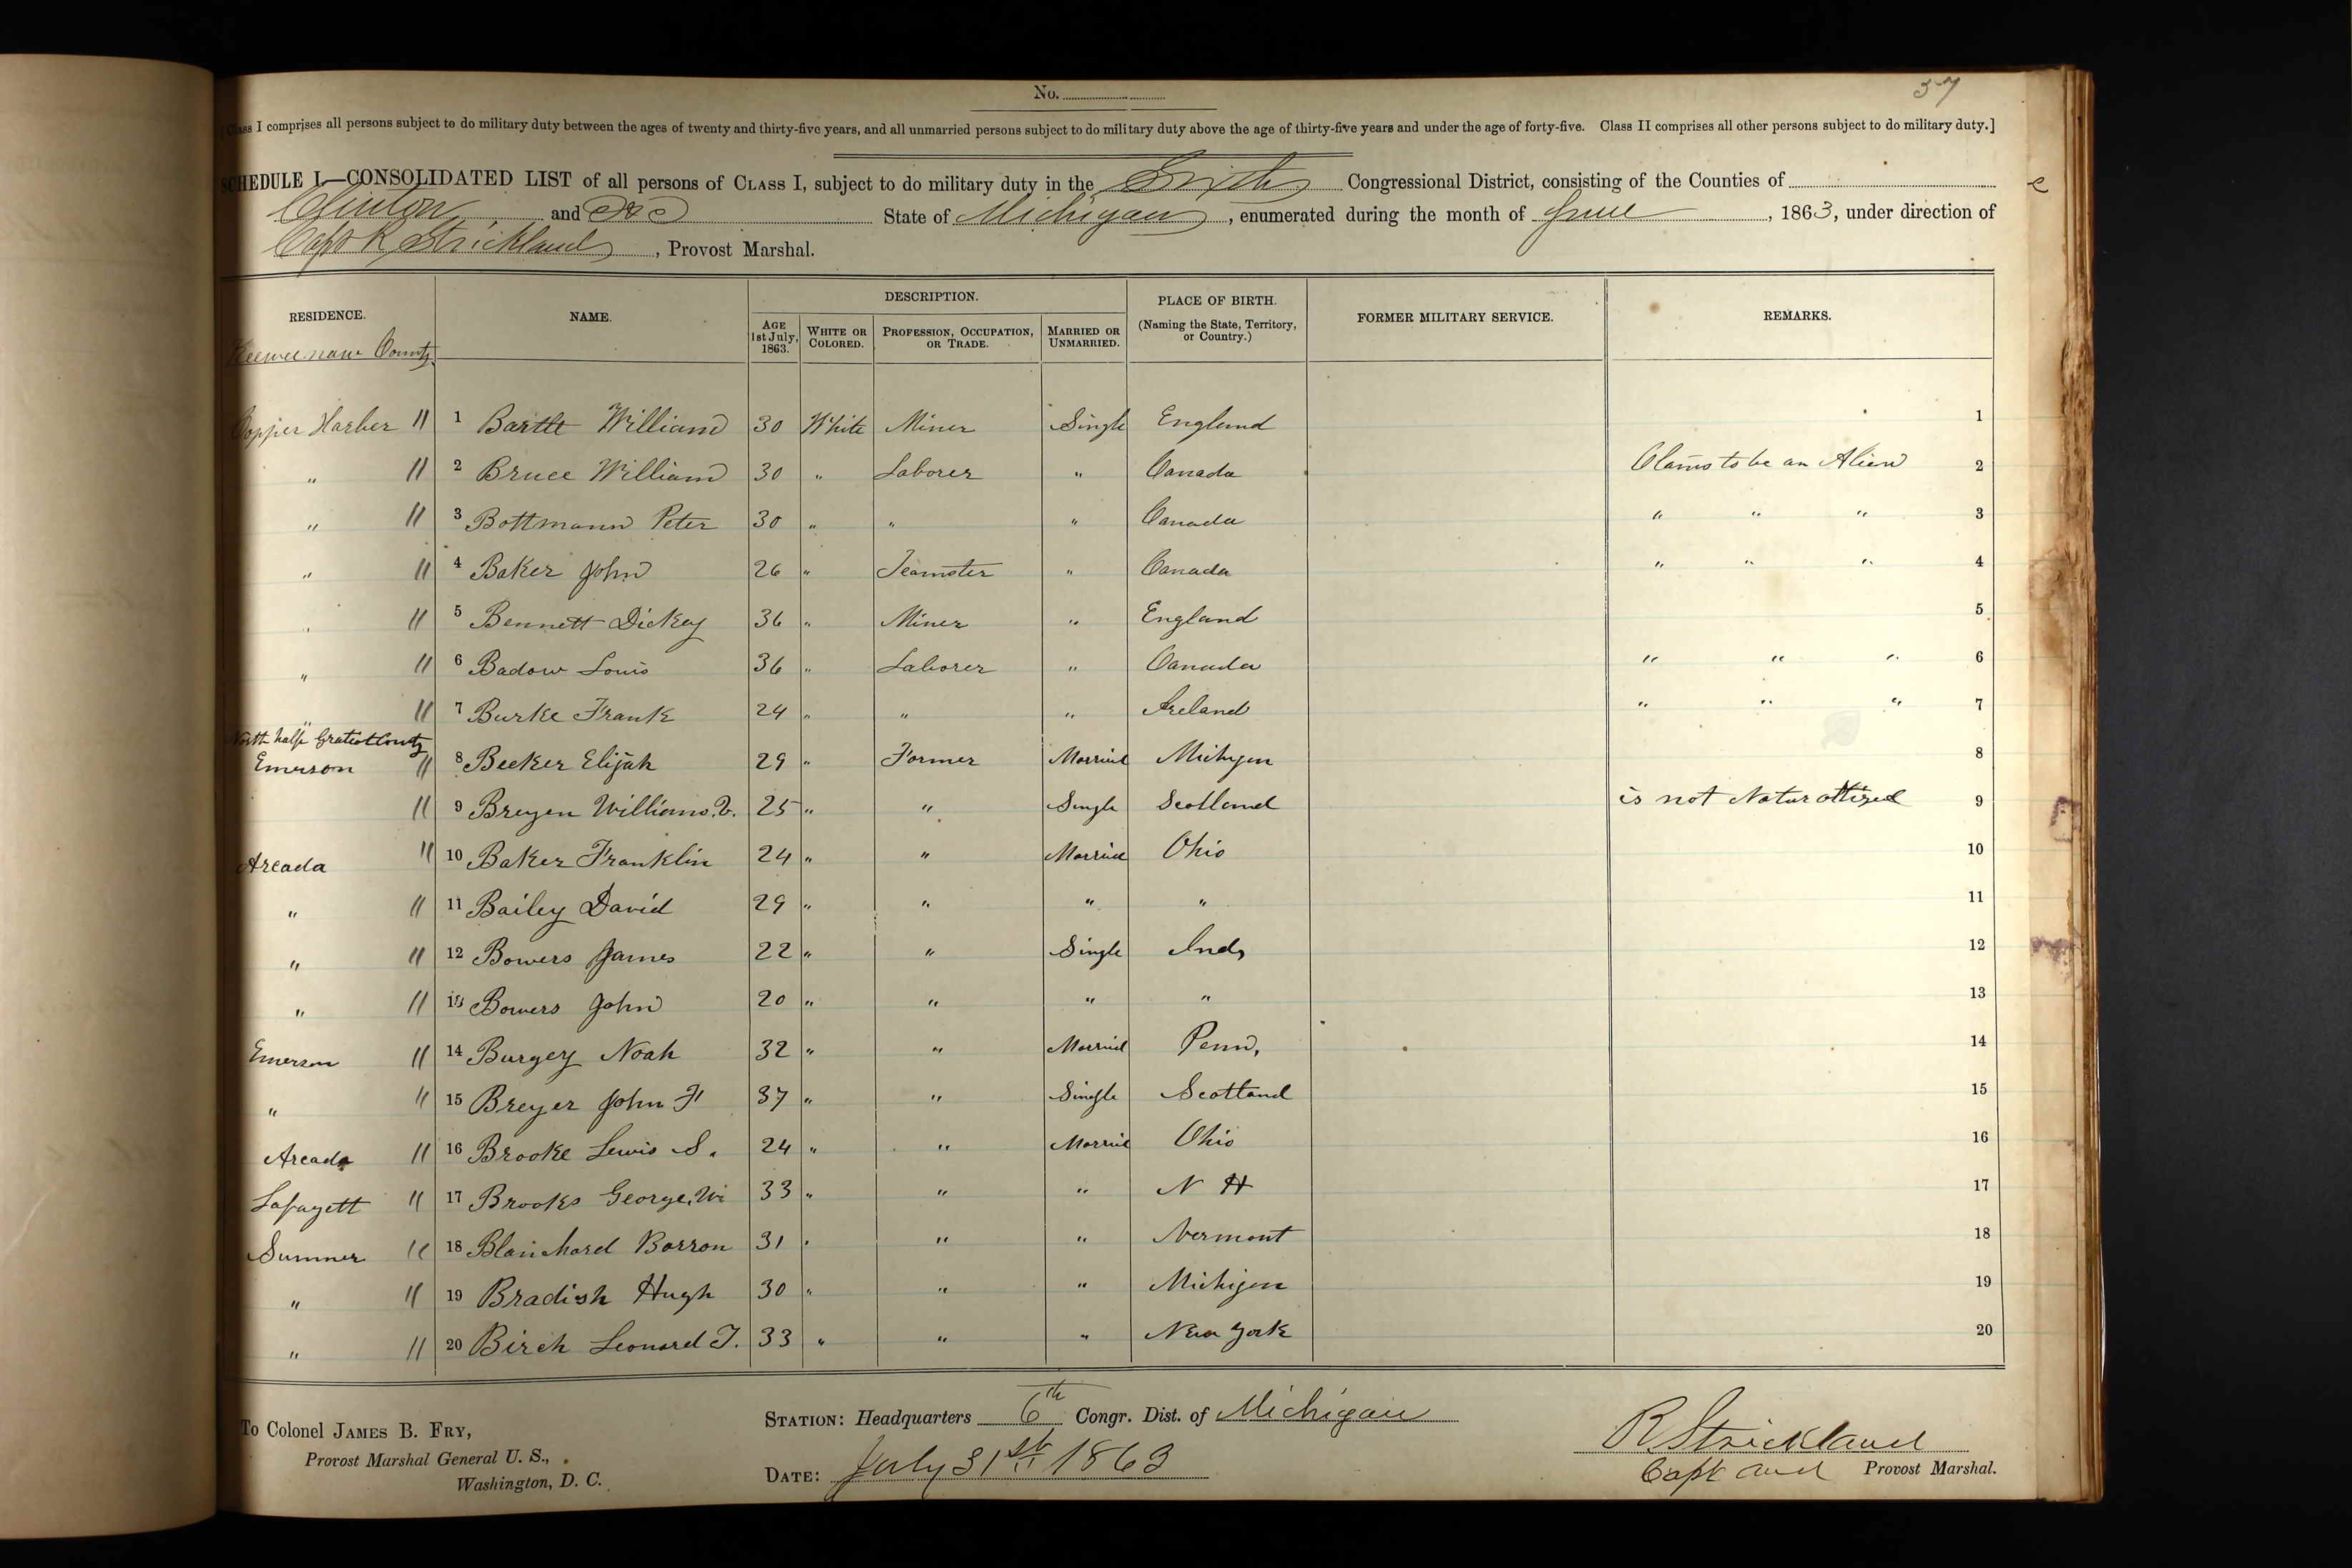 No.
37
Class I comprises all persons subject to do military duty between the ages of twenty and thirty-five years, and all unmarried persons subject to do military duty above the age of thirty-five years and under the age of forty-five. Class II comprises all other persons subject to do military duty.]
SCHEDULE I.—CONSOLIDATED LIST of all persons of CLASS I, subject to do military duty in the Sixth Congressional District, consisting of the Counties of
Clinton and &c State of Michigan, enumerated during the month of June, 1863, under direction of
Capt R Strickland, Provost Marshal.
RESIDENCE. NAME. DESCRIPTION. PLACE OF BIRTH. (Naming the State, Territory, or Country.) FORMER MILITARY SERVICE. REMARKS.
AGE 1st July, 1863. WHITE OR COLORED. PROFESSION, OCCUPATION, OR TRADE. MARRIED OR UNMARRIED.
Keeweenaw County
Copper Harber " 1 Bartle William 30 White Miner Single England 1
" " 2 Bruce William 30 " Laborer " Canada Claims to be an Alien 2
" " 3 Bottmann Peter 30 " " " Canada " " " 3
" " 4 Baker John 26 " Teamster " Canada " " " 4
" " 5 Bennett Dickey 36 " Miner " England 5
" " 6 Badow Louis 36 " Laborer " Canada " " " 6
" " 7 Burke Frank 24 " " " Ireland " " " 7
North half Gratiot County
Emerson " 8 Beeker Elijah 29 " Farmer Married Michigan 8
" 9 Breyen William. V. 25 " " Single Scotland is not Naturallized 9
Arcada " 10 Baker Franklin 24 " " Married Ohio 10
" " 11 Bailey David 29 " " " " 11
" " 12 Bowers James 22 " " Single Ind, 12
" " 13 Bowers John 20 " " " " 13
Emerson " 14 Burgey Noah 32 " " Married Penn, 14
" " 15 Breyer John F 37 " " Single Scotland 15
Arcada " 16 Brooke Lewis S. 24 " " Married Ohio 16
Lafayett " 17 Brooks George, W 33 " " " N H 17
Sumner " 18 Blanchard Barron 31 " " " Vermont 18
" " 19 Bradish Hugh 30 " " " Michigan 19
" " 20 Birch Leonard T. 33 " " " New York 20
To Colonel JAMES B. FRY,
Provost Marshal General U. S.,
Washington, D. C.
STATION: Headquarters 6th Congr. Dist. of Michigan
DATE: July 31st 1863
R. Strickland
Capt and Provost Marshal.